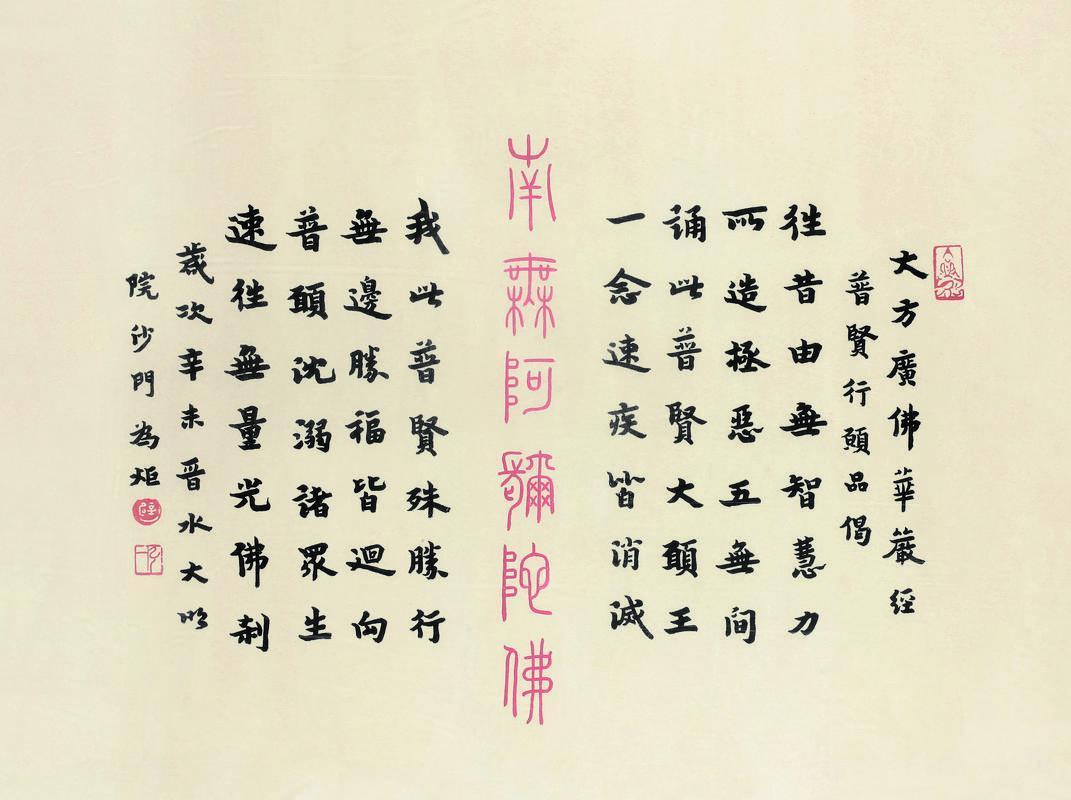 大方廣佛華嚴經
普賢行願品偈
往昔由無智慧力
所造極惡五無間
誦此普賢大願王
一念速疾皆消滅
南無阿彌陀佛
我此普賢殊勝行
無邊勝福皆迴向
普願沈溺諸眾生
速往無量光佛剎
歲次辛未晉水大明
院沙門為炬